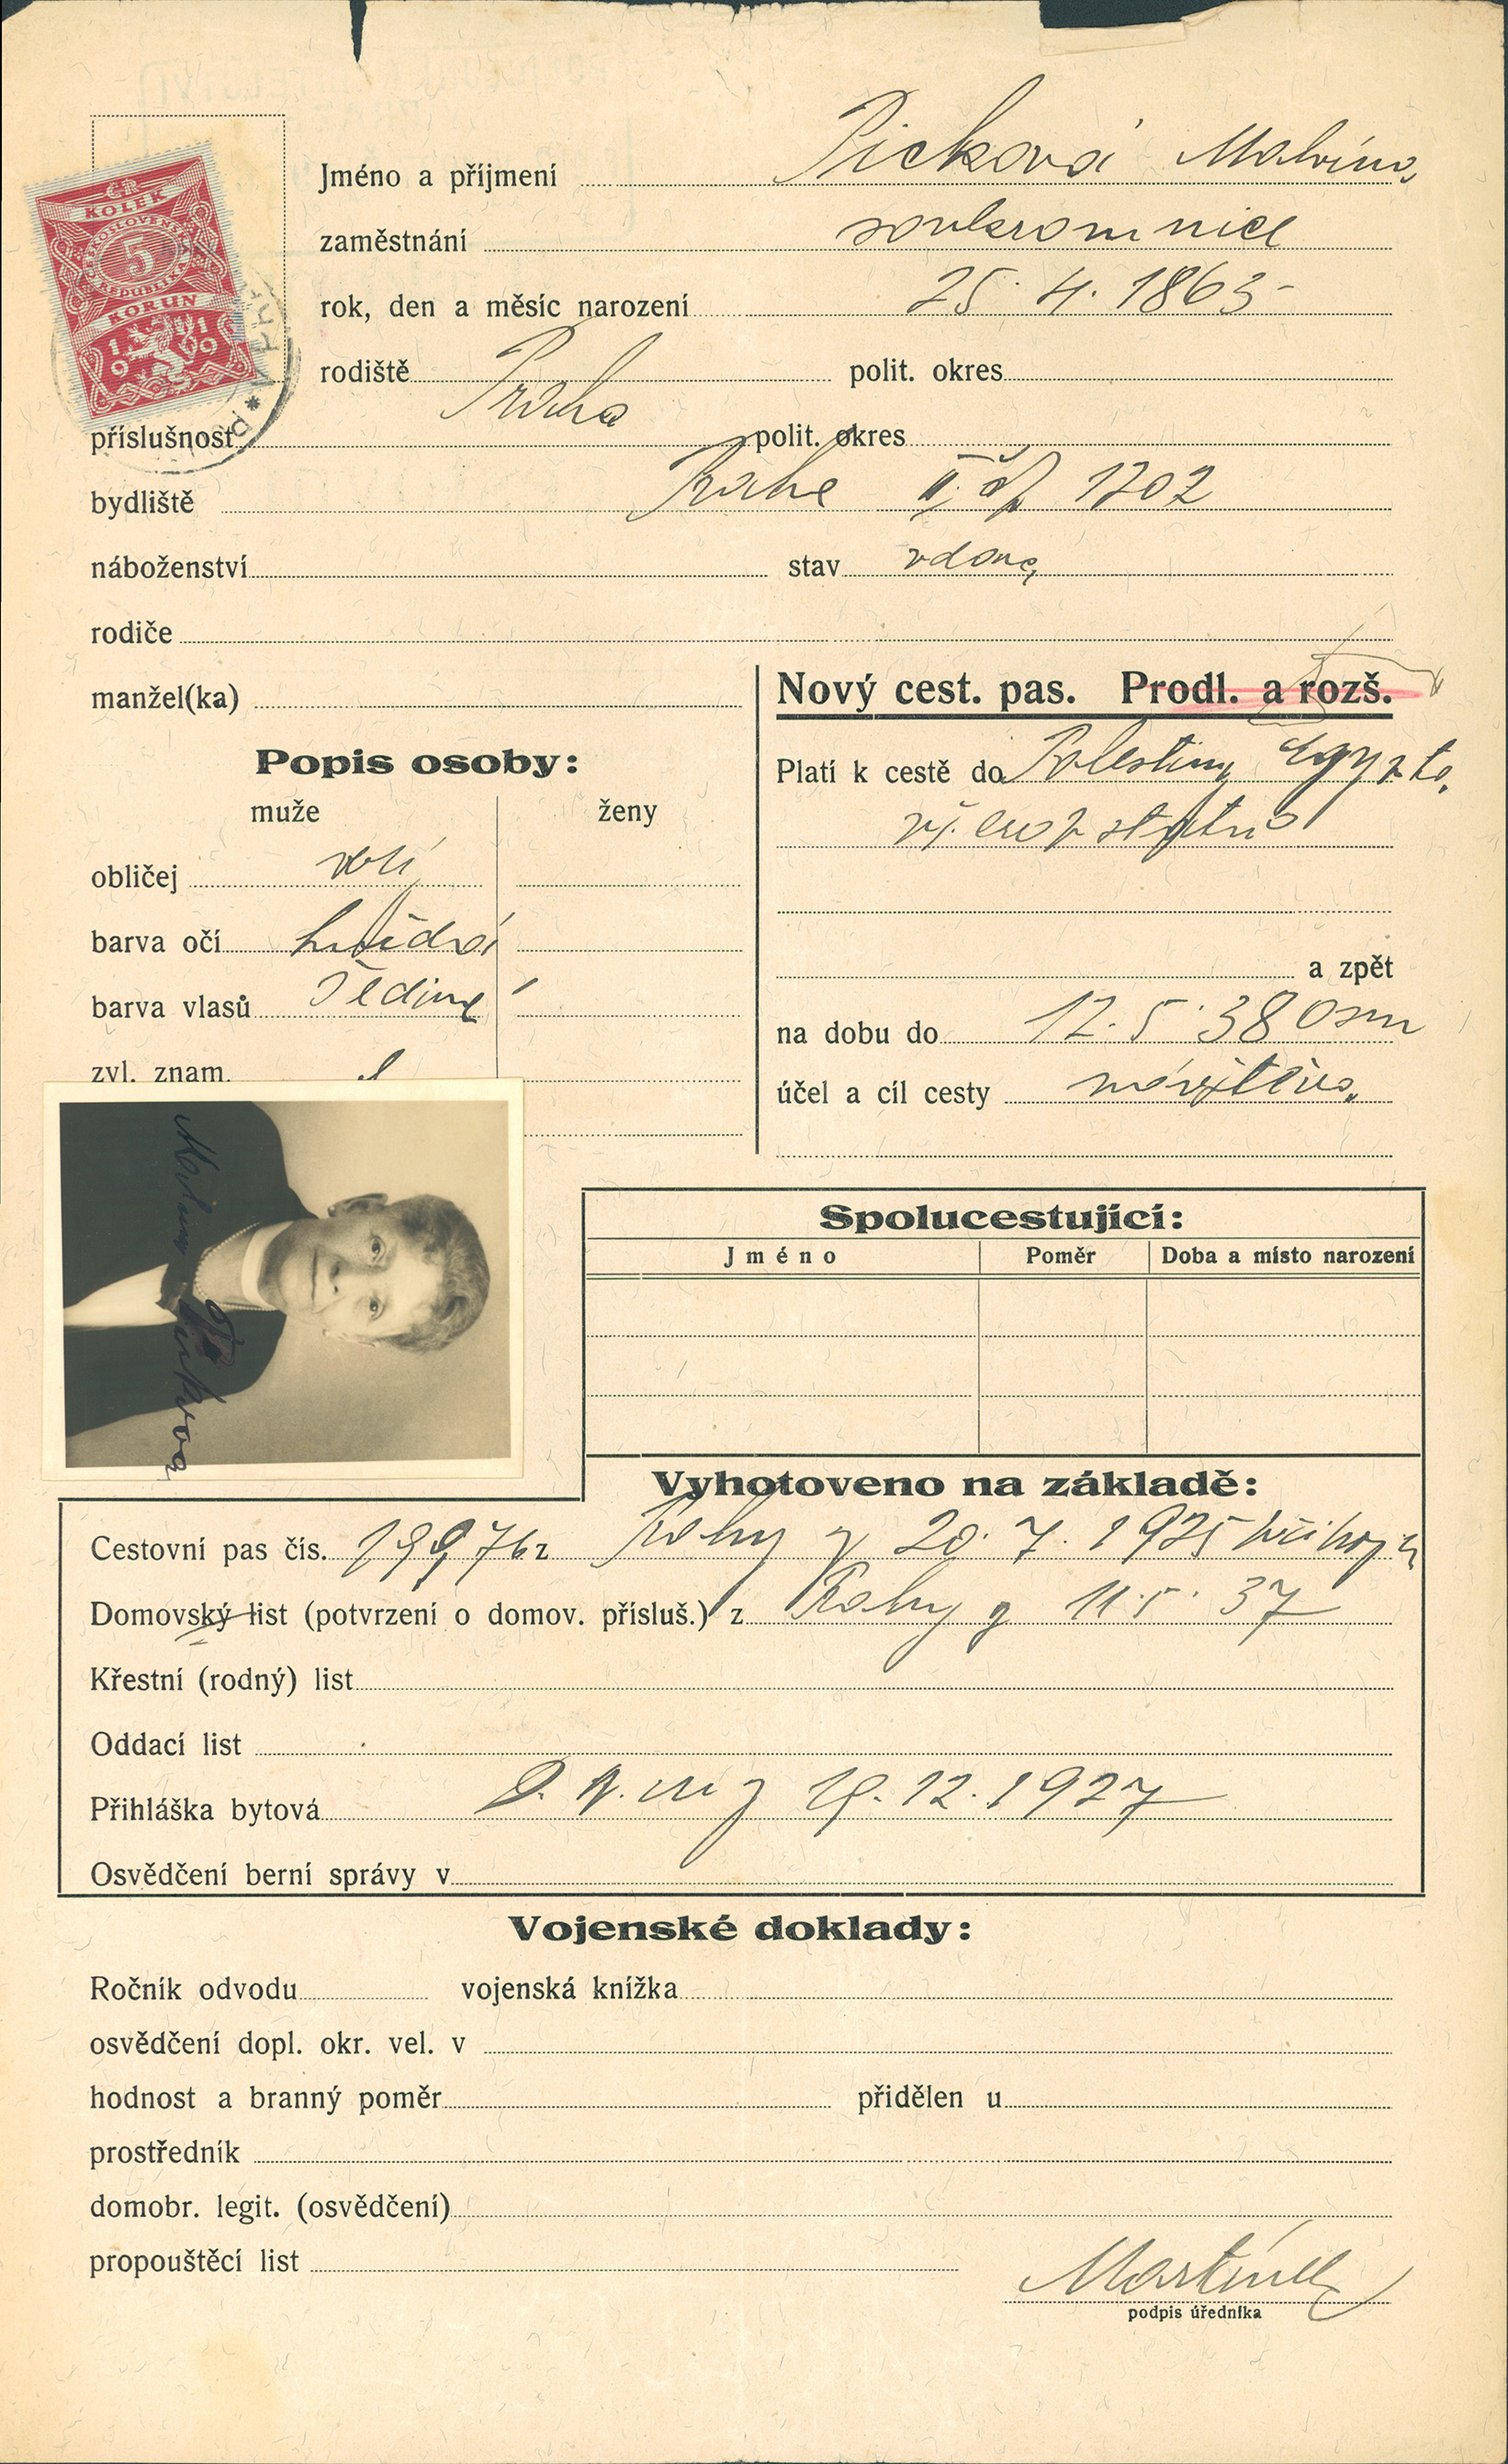 ČR
KOLEK
ČESKOSLOVENSKÁ
5
REPUBLIKA
KORUN
1919
Jméno a příjmení Picková Malvína
zaměstnání soukromnice
rok, den a měsíc narození 25. 4. 1863
rodiště Praha polit. okres
příslušnost polit. okres
bydliště Praha II. čp 1702
náboženství stav vdova
rodiče
manžel(ka)
Nový cest. pas. Prodl. a rozš.
Popis osoby:
muže ženy
obličej
barva očí hnědá
barva vlasů šediné
zvl. znam.
Platí k cestě do Palestiny Egypta
vš. evop států
a zpět
na dobu do 12. 5. 38
účel a cíl cesty návštěva
Malvina Picková
Spolucestující:
Jméno Poměr Doba a místo narození
Vyhotoveno na základě:
Cestovní pas čís. z Prahy z 20. 7. 1925
Domovský list (potvrzení o domov. přísluš.) z Prahy z 11. 5. 37
Křestní (rodný) list
Oddací list
Přihláška bytová z 19. 12. 1927
Osvědčení berní správy v
Vojenské doklady:
Ročník odvodu vojenská knížka
osvědčení dopl. okr. vel. v
hodnost a branný poměr přidělen u
prostředník
domobr. legit. (osvědčení)
propouštěcí list
Martínek
podpis úředníka